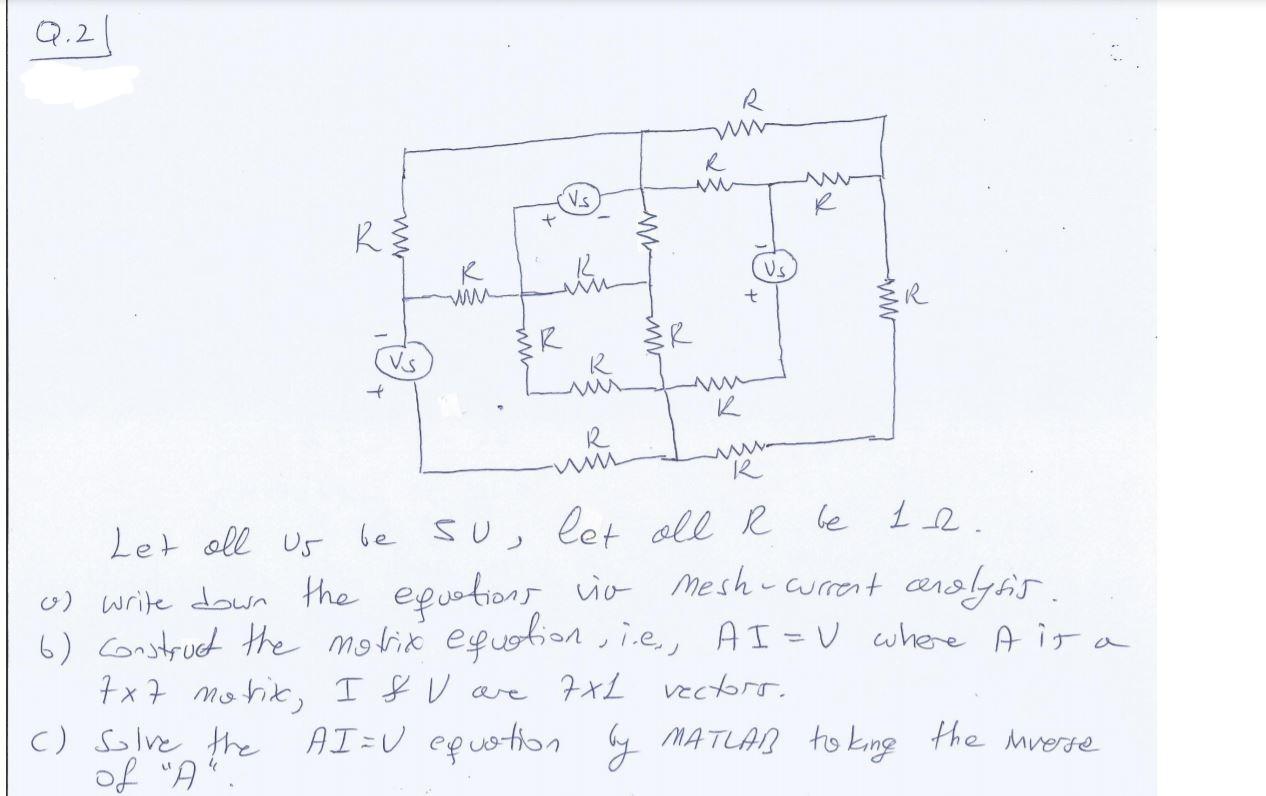 Q.2
R
R
Vs
+ -
R
R
R
R
-
Vs
+
R
R
R
-
Vs
+
R
R
R
R
R
Let all Vs be 5V, let all R be 1 Ω.
a) write down the equations via mesh-current analysis.
b) construct the matrix equation, i.e., AI = V where A is a
7x7 matrix, I & V are 7x1 vectors.
c) Solve the AI=V equation by MATLAB taking the inverse
of "A".